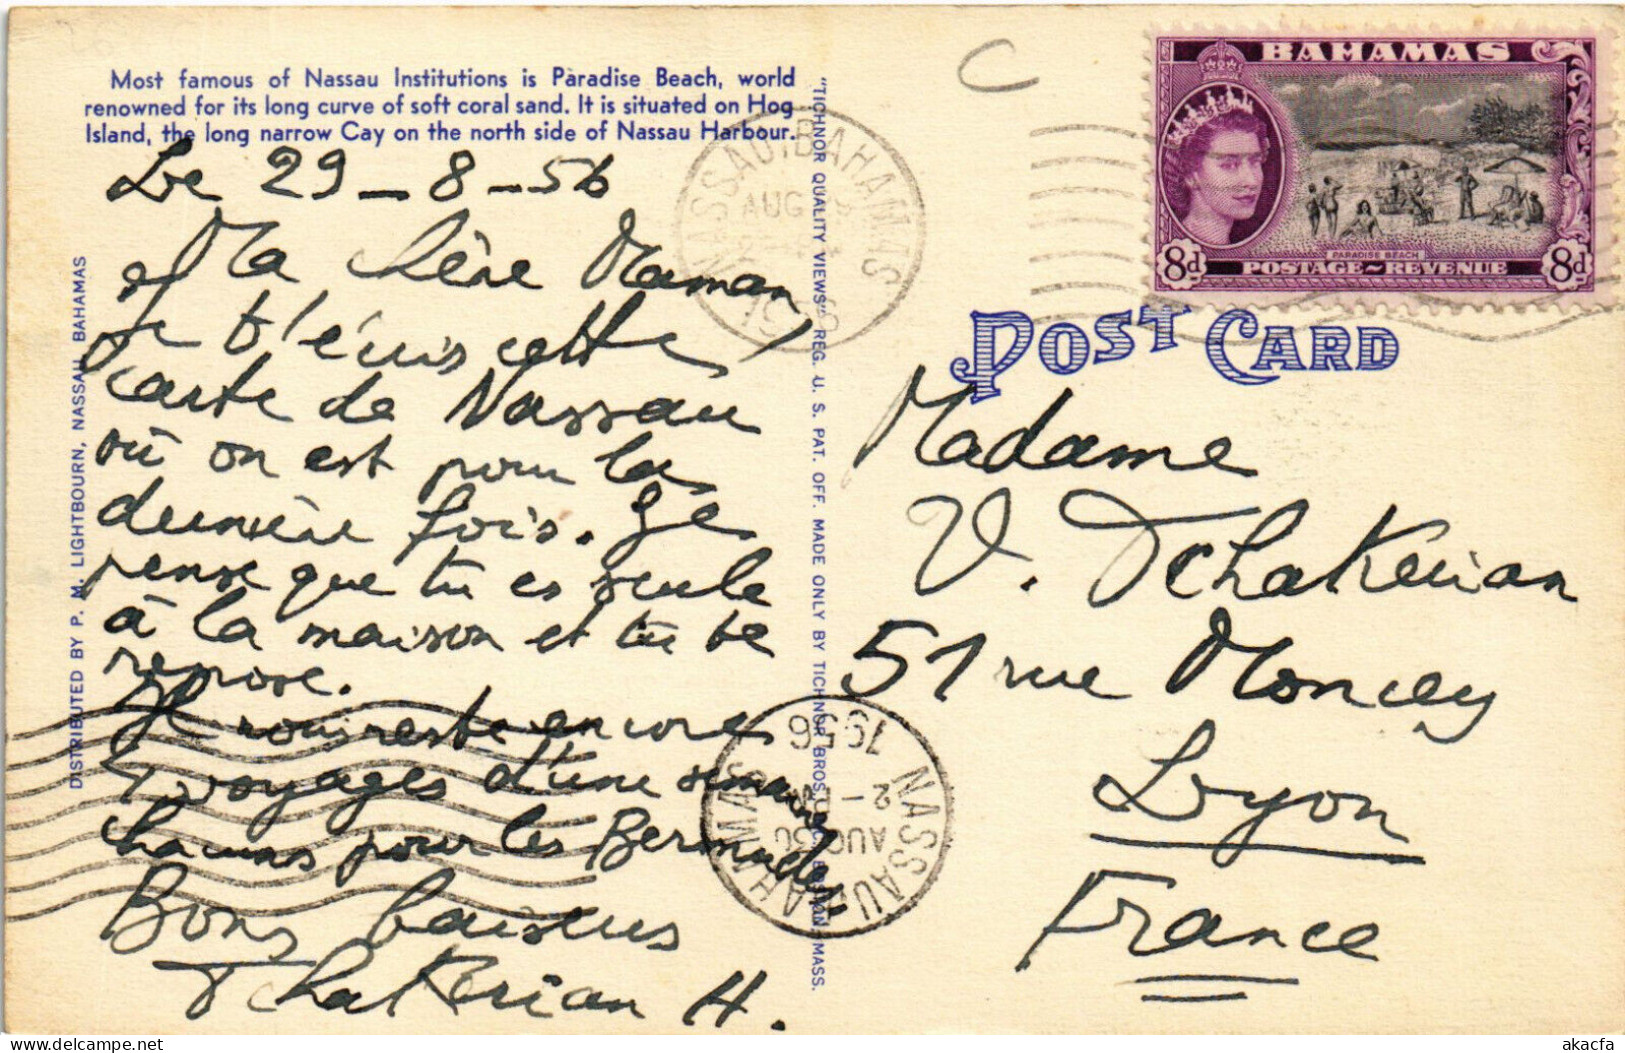 Most famous of Nassau Institutions is Paradise Beach, world
renowned for its long curve of soft coral sand. It is situated on Hog
Island, the long narrow Cay on the north side of Nassau Harbour.
Le 29-8-56
Ma Chère Maman
Je t'écris cette
carte de Nassau
où on est pour la
dernière fois. Je
pense que tu es seule
à la maison et tu te
repose.
Il nous reste encore
4 voyages d'une semaine
chacuns pour les Bermudes
Bons baisers
Tchakerian H.
DISTRIBUTED BY P. M. LIGHTBOURN, NASSAU, BAHAMAS
"TICHNOR QUALITY VIEWS" REG. U. S. PAT. OFF. MADE ONLY BY TICHNOR BROS., INC., BOSTON, MASS.
NASSAU.BAHAMAS
AUG
1956
NASSAU BAHAMAS
2 - PM
AUG 30
1956
BAHAMAS
8d
PARADISE BEACH
POSTAGE~REVENUE
8d
POST CARD
Madame
V. Tchakerian
51 rue Moncey
Lyon
France
akacfa